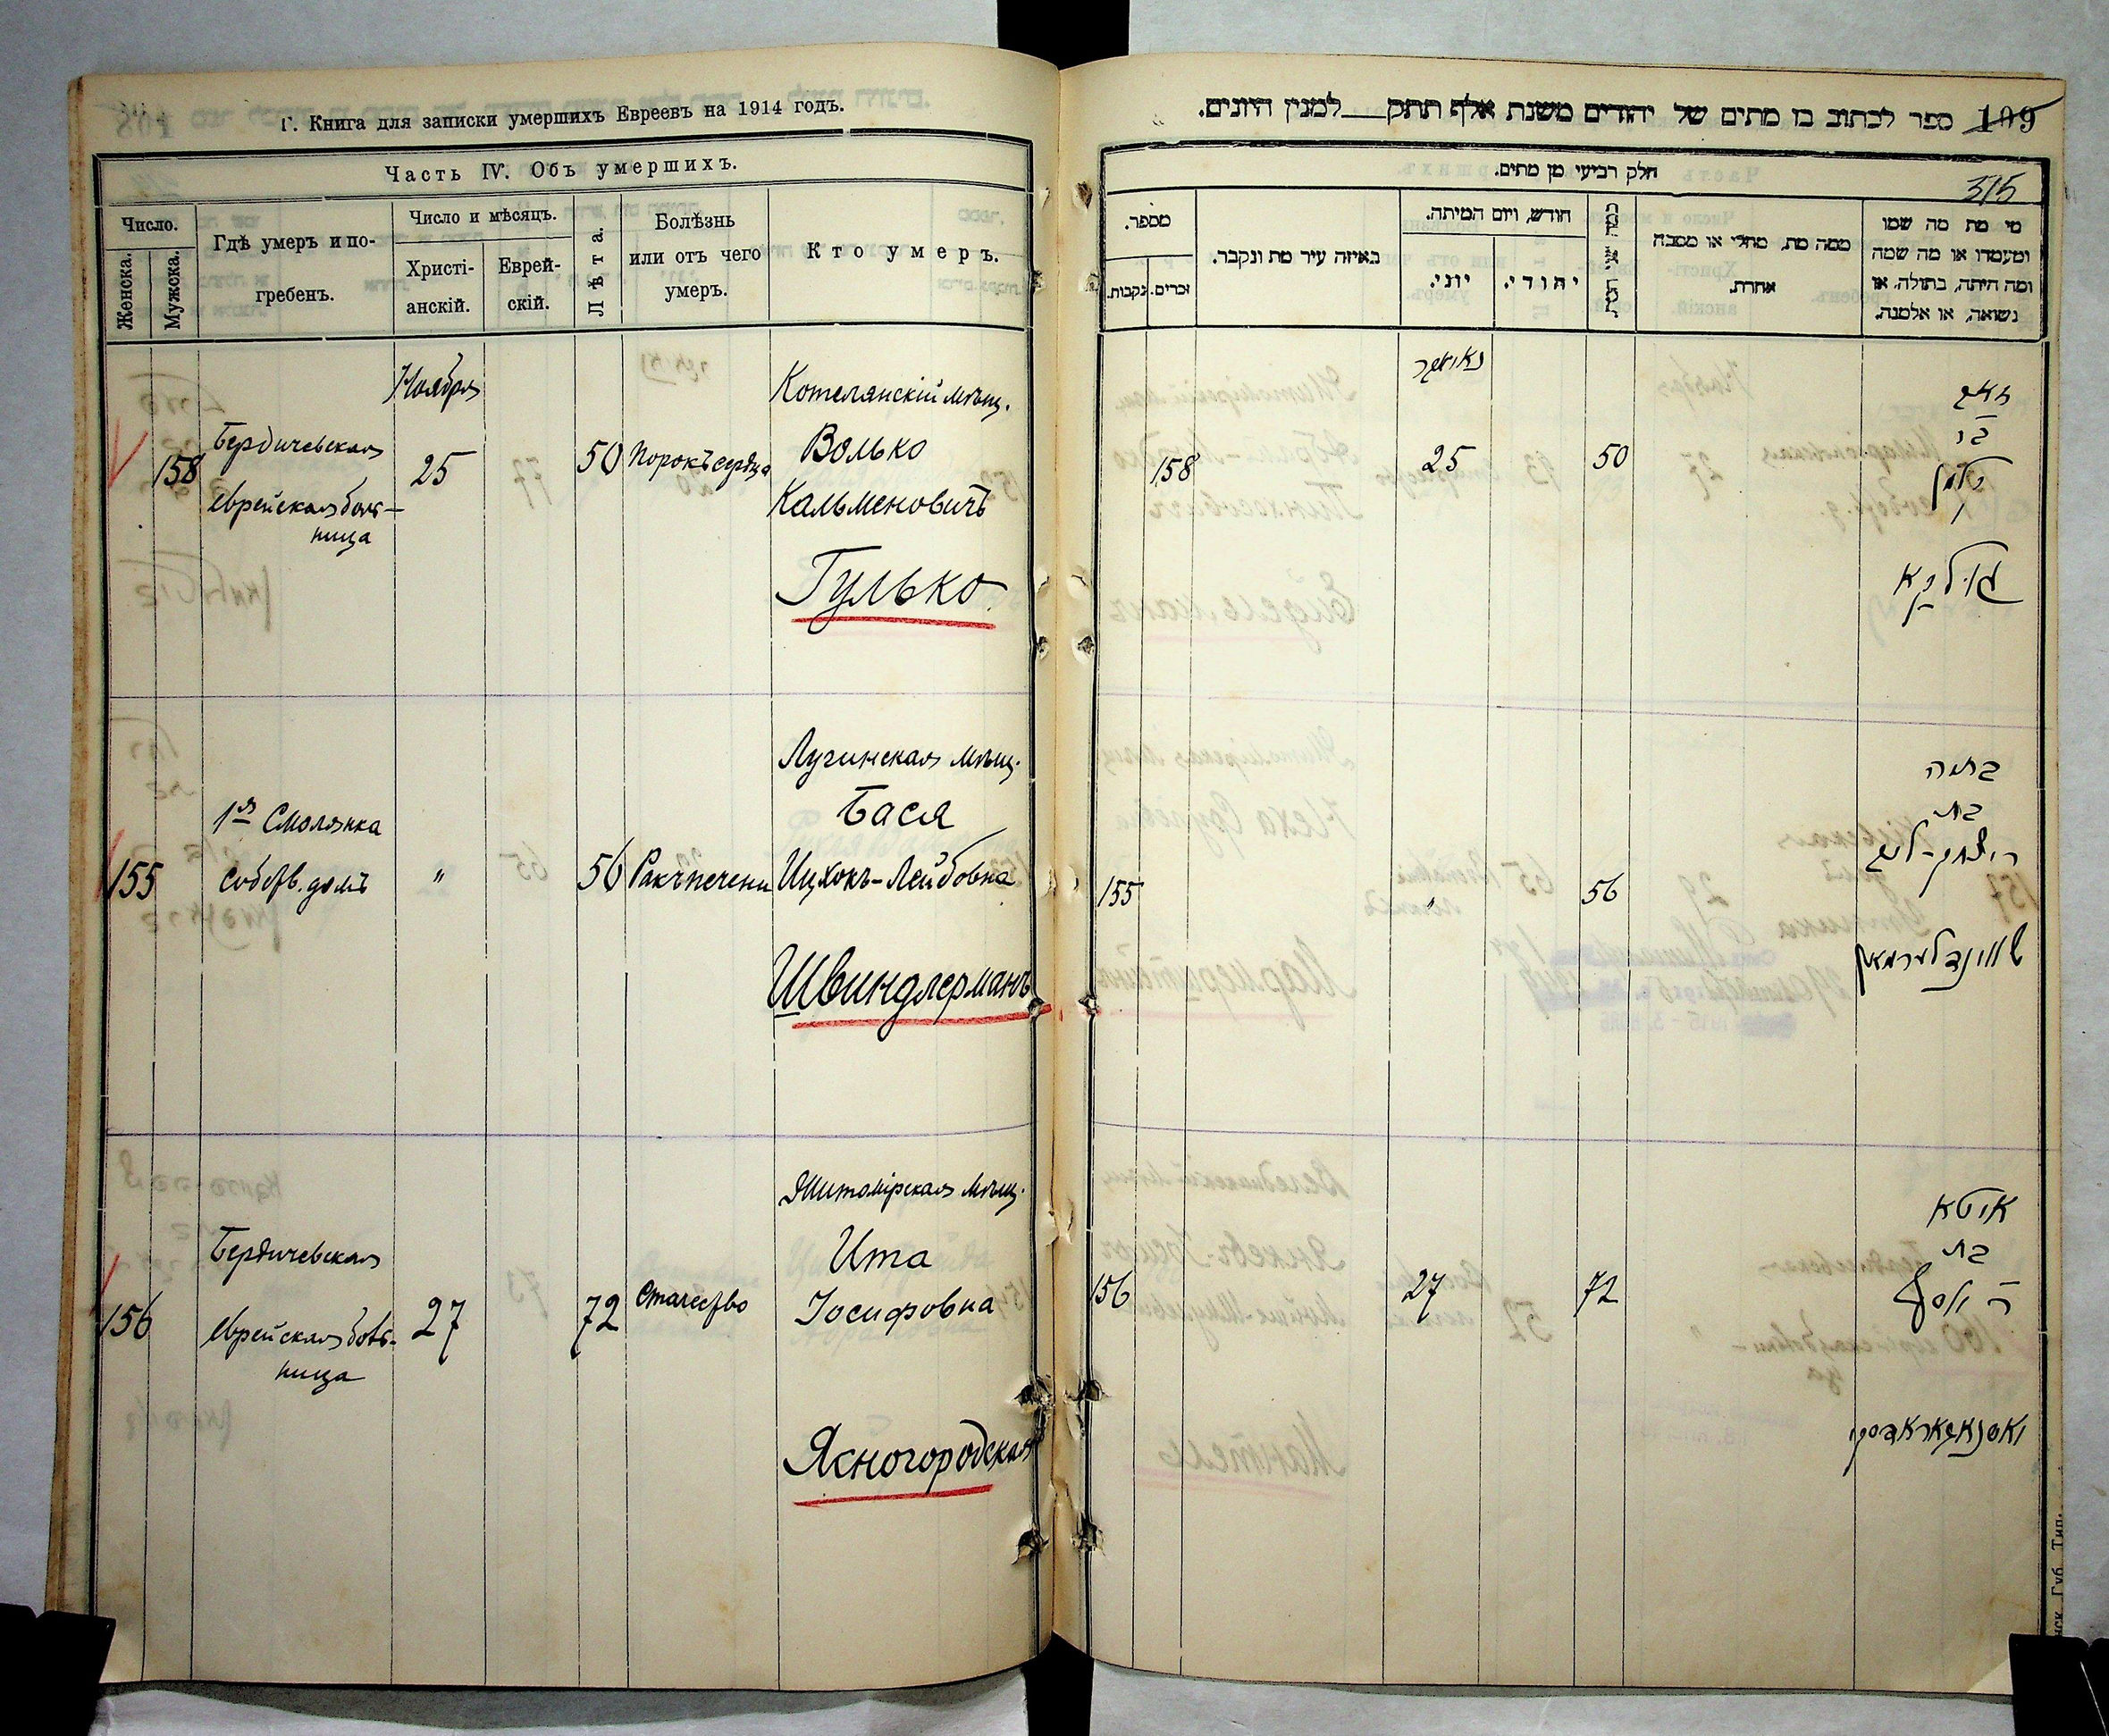 Г. Книга для записки умершихъ Евреевъ на 1914 годъ.
Часть IV. Объ умершихъ.
Число.
Женска.
Мужска.
Гдѣ умеръ и по-
гребенъ.
Число и мѣсяцъ.
Христі-
анскій.
Еврей-
скій.
Лѣта.
Болѣзнь
или отъ чего
умеръ.
Кто умеръ.
Ноября
158
Бердичевская
еврейская боль-
ница
25
50
Порокъ сердца
Котелянскій мѣщ.
Волько
Кальменовичъ
Гулько
155
1ая Смолянка
собств. домъ
"
56
Ракъ печени
Лугинская мѣщ.
Бася
Ицхокъ-Лейбовна
Швиндлерманъ
156
Бердичевская
еврейская боль-
ница
27
72
Старчество
Житомірская мѣщ.
Ита
Іосифовна
Ясногородская
109
ספר לכתוב בו מתים של יהודים משנת אלף תתק למנין היונים.
315
חלק רביעי מן מתים.
מספר.
נקבות.
זכרים.
באיזה עיר מת ונקבר.
חודש, ויום המיתה.
יוני.
יהודי.
ממה מת, מחלי או מסבה
אחרת.
מי מת מה שמו
ומעמדו או מה שמה
ומה היתה, בתולה, או
נשואה, או אלמנה.
158
25
50
בר
קלמן
גולקא
155
"
56
בת
שווינדלערמאן
156
27
72
איטא
בת
ר יוסף
יאסנאגאראדסקי